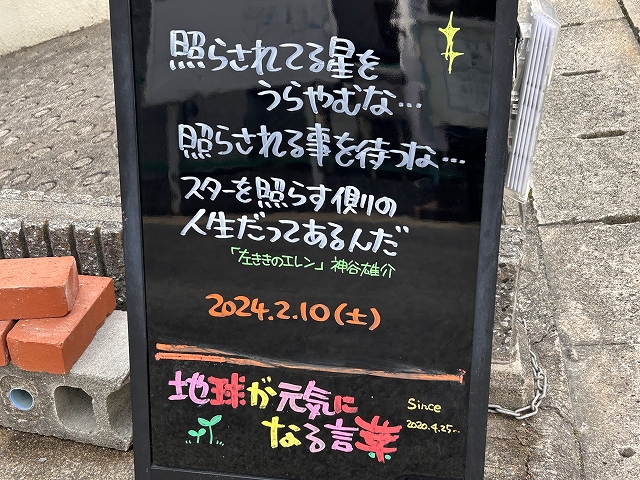 照らされてる星を
うらやむな…
照らされる事を待つな…
スターを照らす側の
人生だってあるんだ
「左ききのエレン」神谷雄介
2024.2.10(土)
地球が元気に
なる言葉
Since
2020.4.25~